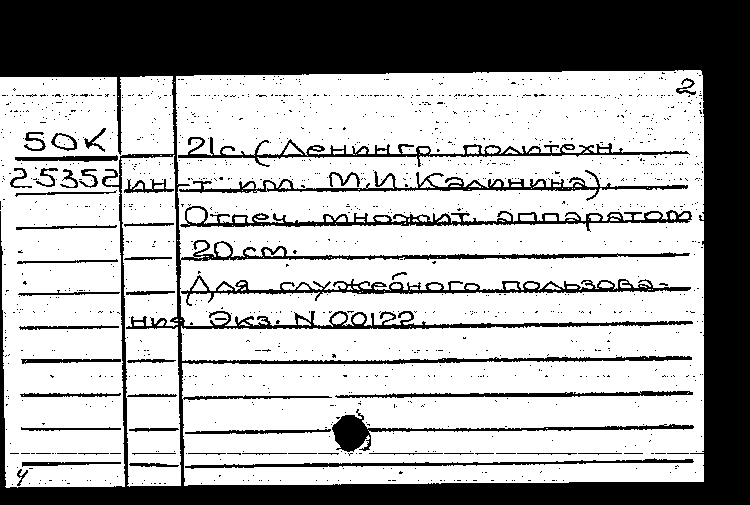 2
50К 21с. (Ленингр. политехн.
25352 ин-т им. М.И. Калинина).
Отпеч. множит. аппаратом.
20 см.
Для служебного пользова-
ния. Экз. N 00122.
4